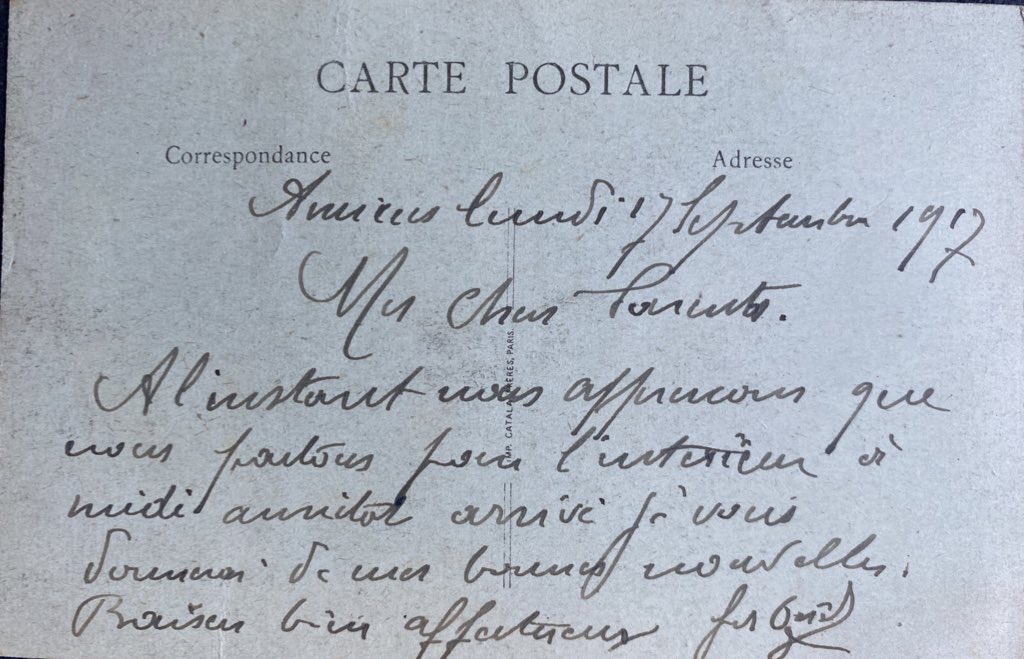 CARTE POSTALE
Correspondance Adresse
Amiens lundi 17 Septembre 1917
Mes chers Parents.
A l'instant nous apprenons que
nous partons pour l'intérieur à
midi aussitot arrivé je vous
donnerai de mes bonnes nouvelles.
Baisers bien affectueux
IMP. CATALA FRÈRES, PARIS